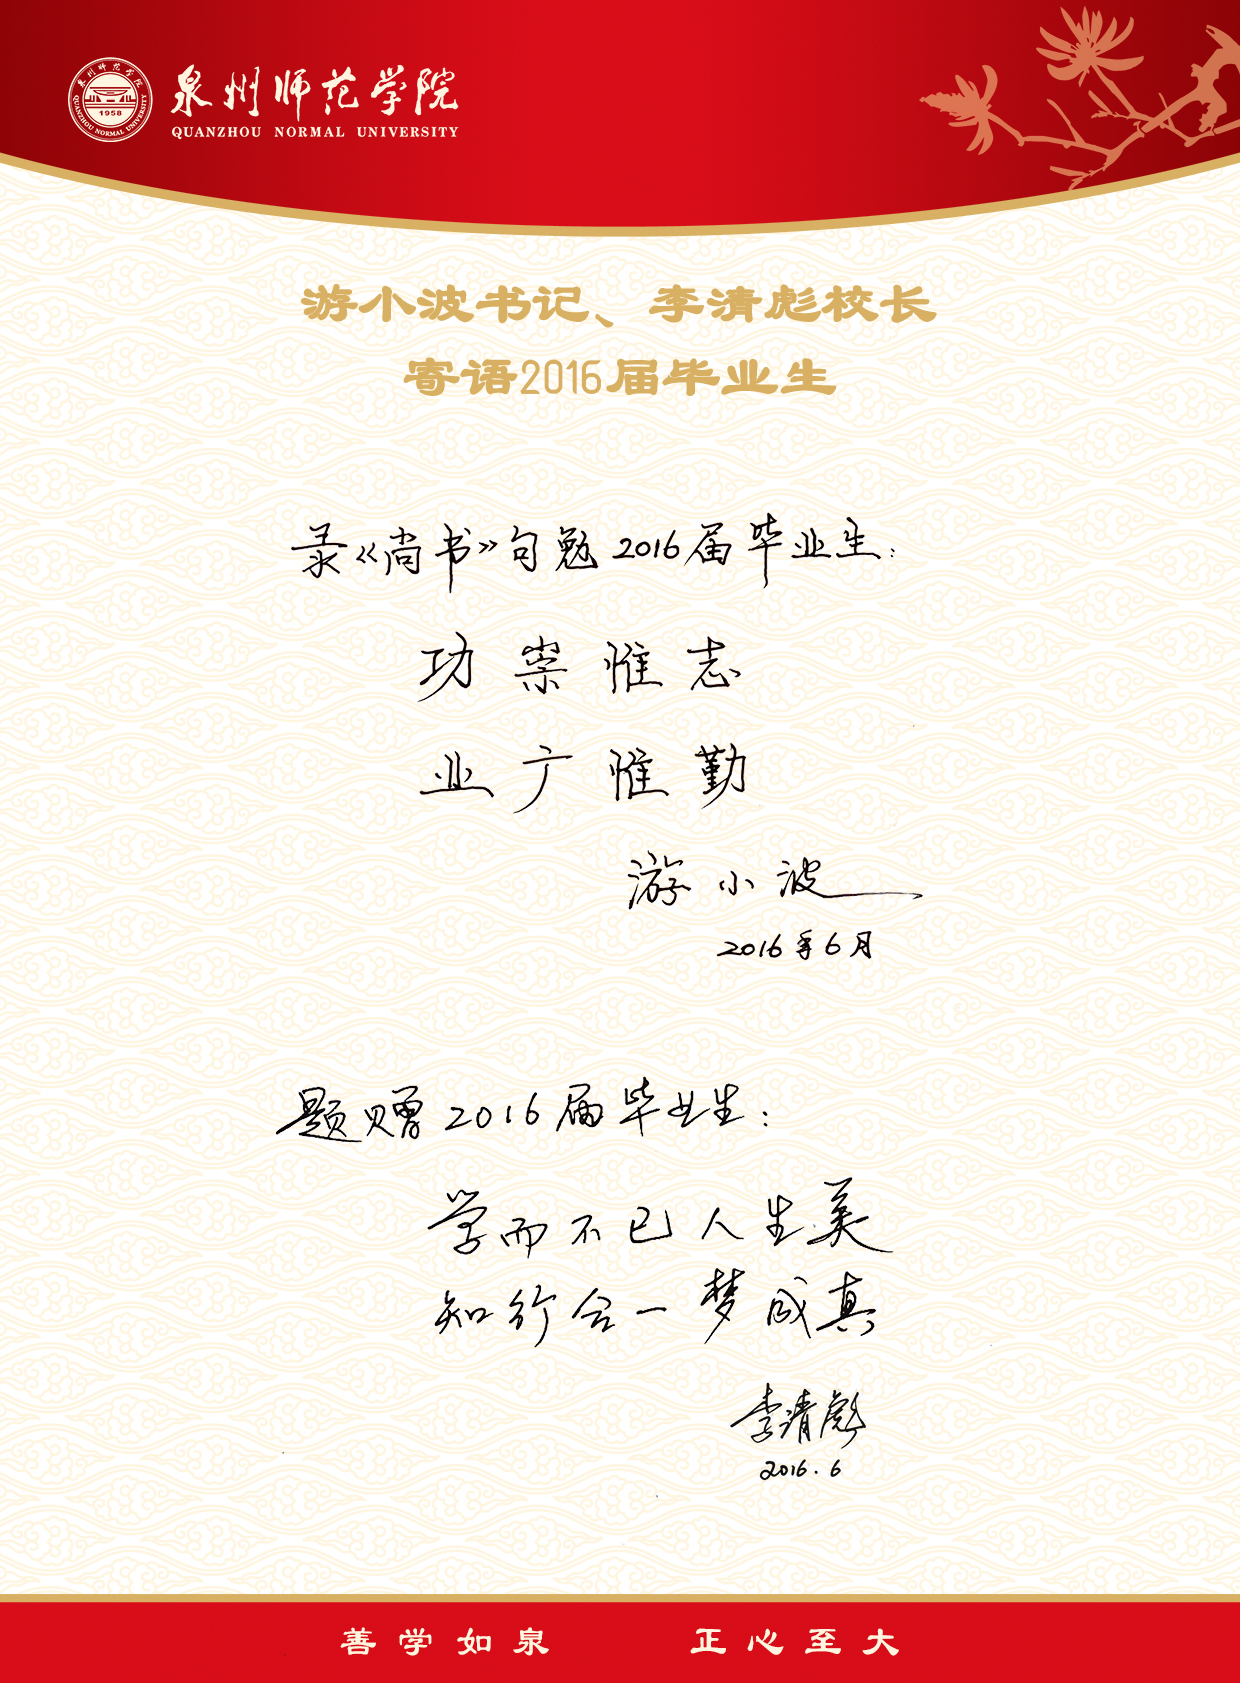 泉州师范学院
QUANZHOU NORMAL UNIVERSITY
泉州师范学院
QUANZHOU NORMAL UNIVERSITY
1958
游小波书记、李清彪校长
寄语2016届毕业生
录《尚书》句勉2016届毕业生：
功崇惟志
业广惟勤
游小波
2016年6月
题赠2016届毕业生：
学而不已人生美
知行合一梦成真
李清彪
2016.6
善学如泉 正心至大